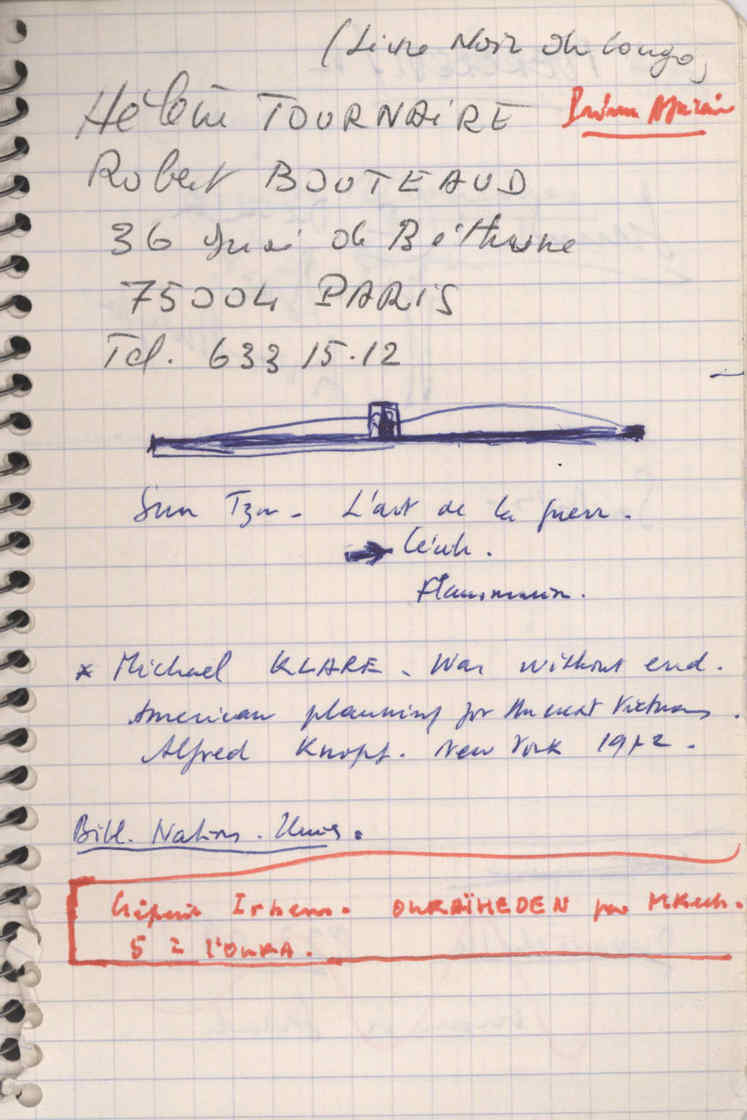 (Livre Noir du Congo)
Hélène TOURNAIRE
Robert BOUTEAUD
36 Quai de Béthune
75004 PARIS
Tel. 633 15.12
Sun Tzu - L'art de la guerre.
Flammarion.
* Michael KLARE - War without end.
American planning for the next Vietnams.
Alfred Knopf. New York 1972.
Bibl. Nations. Unies.
OURAÏHEDEN par
5 2 l'OURKA.